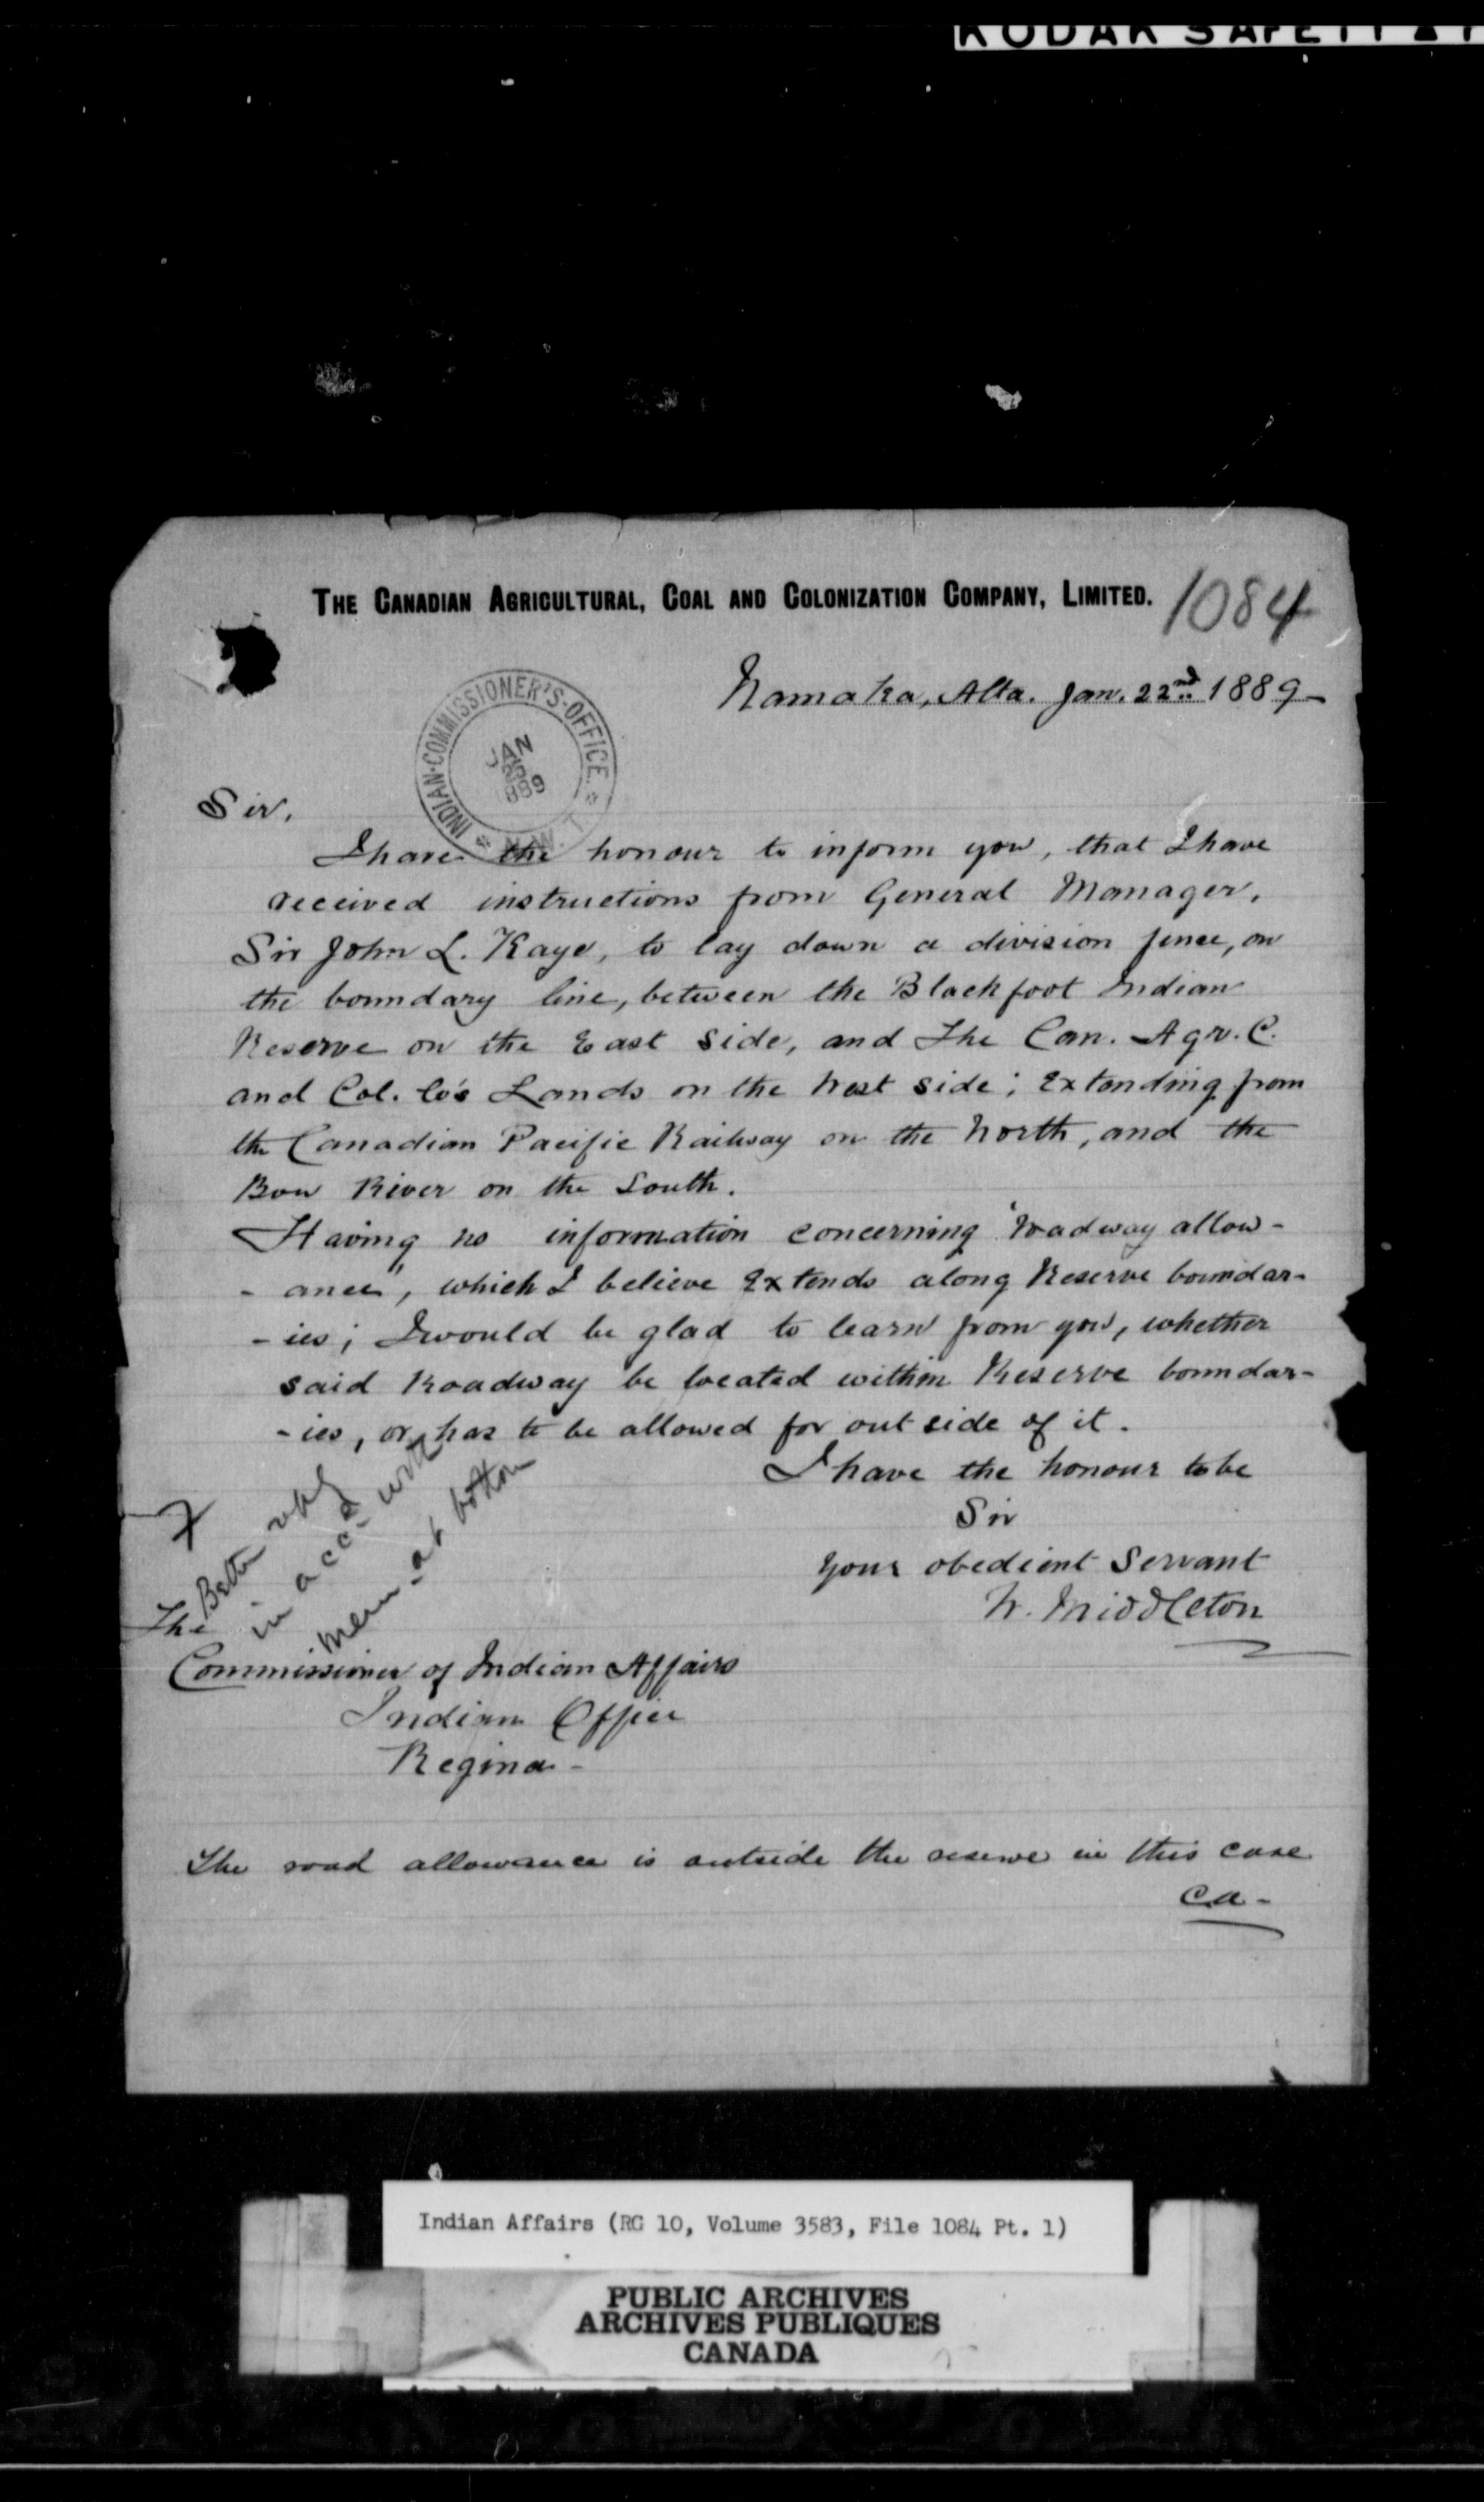 KODAK SAFETY
THE CANADIAN AGRICULTURAL, COAL AND COLONIZATION COMPANY, LIMITED.
1084
Namaka, Alta. Jan. 22nd 1889
INDIAN-COMMISSIONER'S-OFFICE. * N.W.T. *
JAN
1889
Sir,
I have the honour to inform you, that I have
received instructions from General Manager,
Sir John L. Kaye, to lay down a division fence, on
the boundary line, between the Blackfoot Indian
Reserve on the East Side, and The Can. Agr. C.
and Col. Co's Lands on the West side; Extending from
the Canadian Pacific Railway on the North, and the
Bow River on the South.
Having no information concerning "roadway allow-
- ance", which I believe Extends along Reserve boundar-
- ies; I would be glad to learn from you, whether
said Roadway be located within Reserve boundar-
- ies, or has to be allowed for outside of it.
I have the honour to be
Sir
Your obedient Servant
W. Middleton
Better reply
in acc. with
mem. at bottom
The
Commissioner of Indian Affairs
Indian Office
Regina -
The road allowance is outside the reserve in this case
Indian Affairs (RG 10, Volume 3583, File 1084 Pt. 1)
PUBLIC ARCHIVES
ARCHIVES PUBLIQUES
CANADA